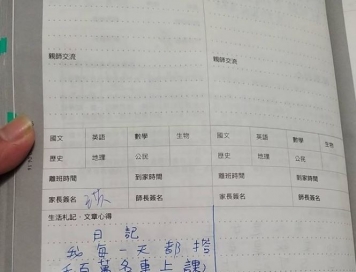 親師交流
親師交流
國文 英語 數學 生物
國文 英語 數學 生物
歷史 地理 公民
歷史 地理 公民
離班時間 到家時間
離班時間 到家時間
家長簽名 師長簽名
家長簽名 師長簽名
生活札記‧文章心得
日記
我每一天都搭
千百萬名車上課,